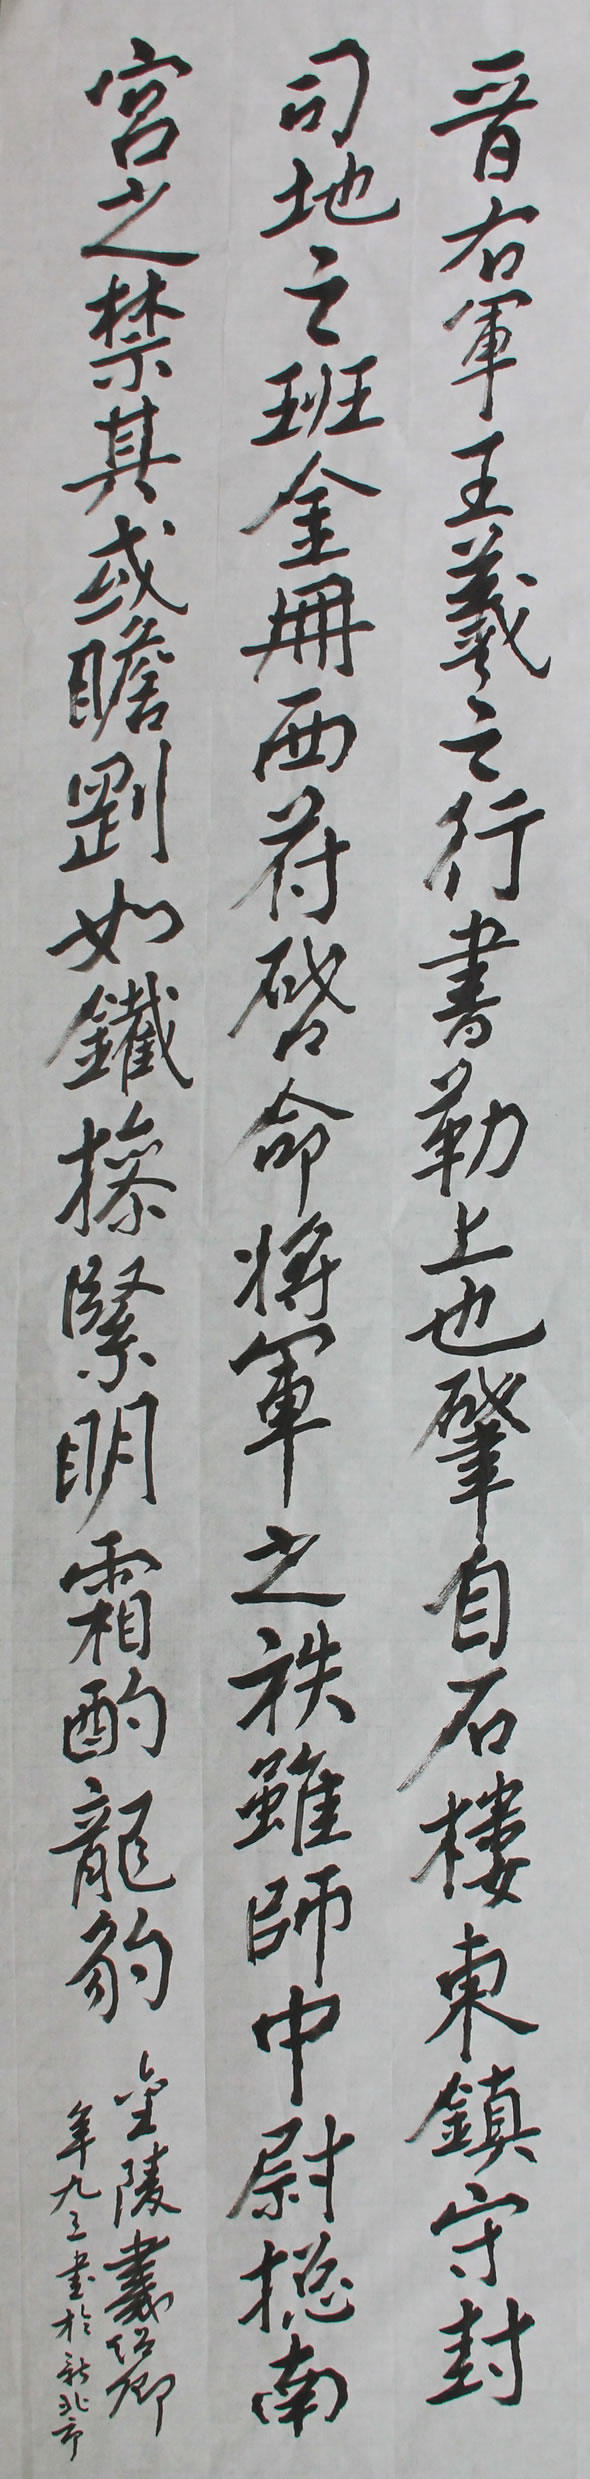 晉右軍王羲之行書勒上也肇自石樓東鎮守封
司地之班金冊西符啓命將軍之秩雖師中尉摠南
宮之禁其或瞻剛如鐵操緊明霜酌龍豹
金陵卿
年九三書於新北市